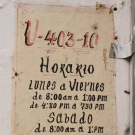 U-403-10
Horario
Lunes a Viernes
de 8:00am a 1:00PM
de 4:30 PM a 7:30 PM
Sabado
de 8:00am a 1PM